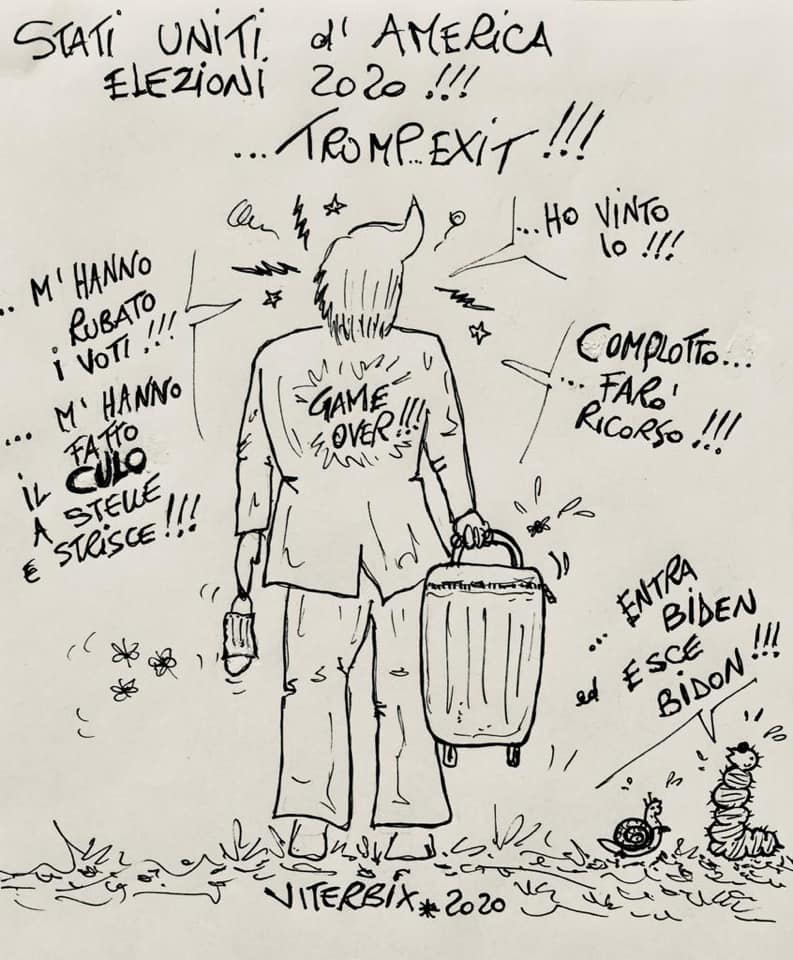 STATI UNITI d'AMERICA
ELEZIONI 2020 !!!
...TROMP...EXIT !!!
...HO VINTO
IO !!!
.. M'HANNO
RUBATO
i VOTI !!!
... M'HANNO
FATTO
iL CULO
A STELLE
E STRISCE !!!
GAME
OVER !!!
COMPLOTTO...
... FARO'
RICORSO !!!
... ENTRA
BIDEN
ed ESCE
BIDON !!!
VITERBIX * 2020